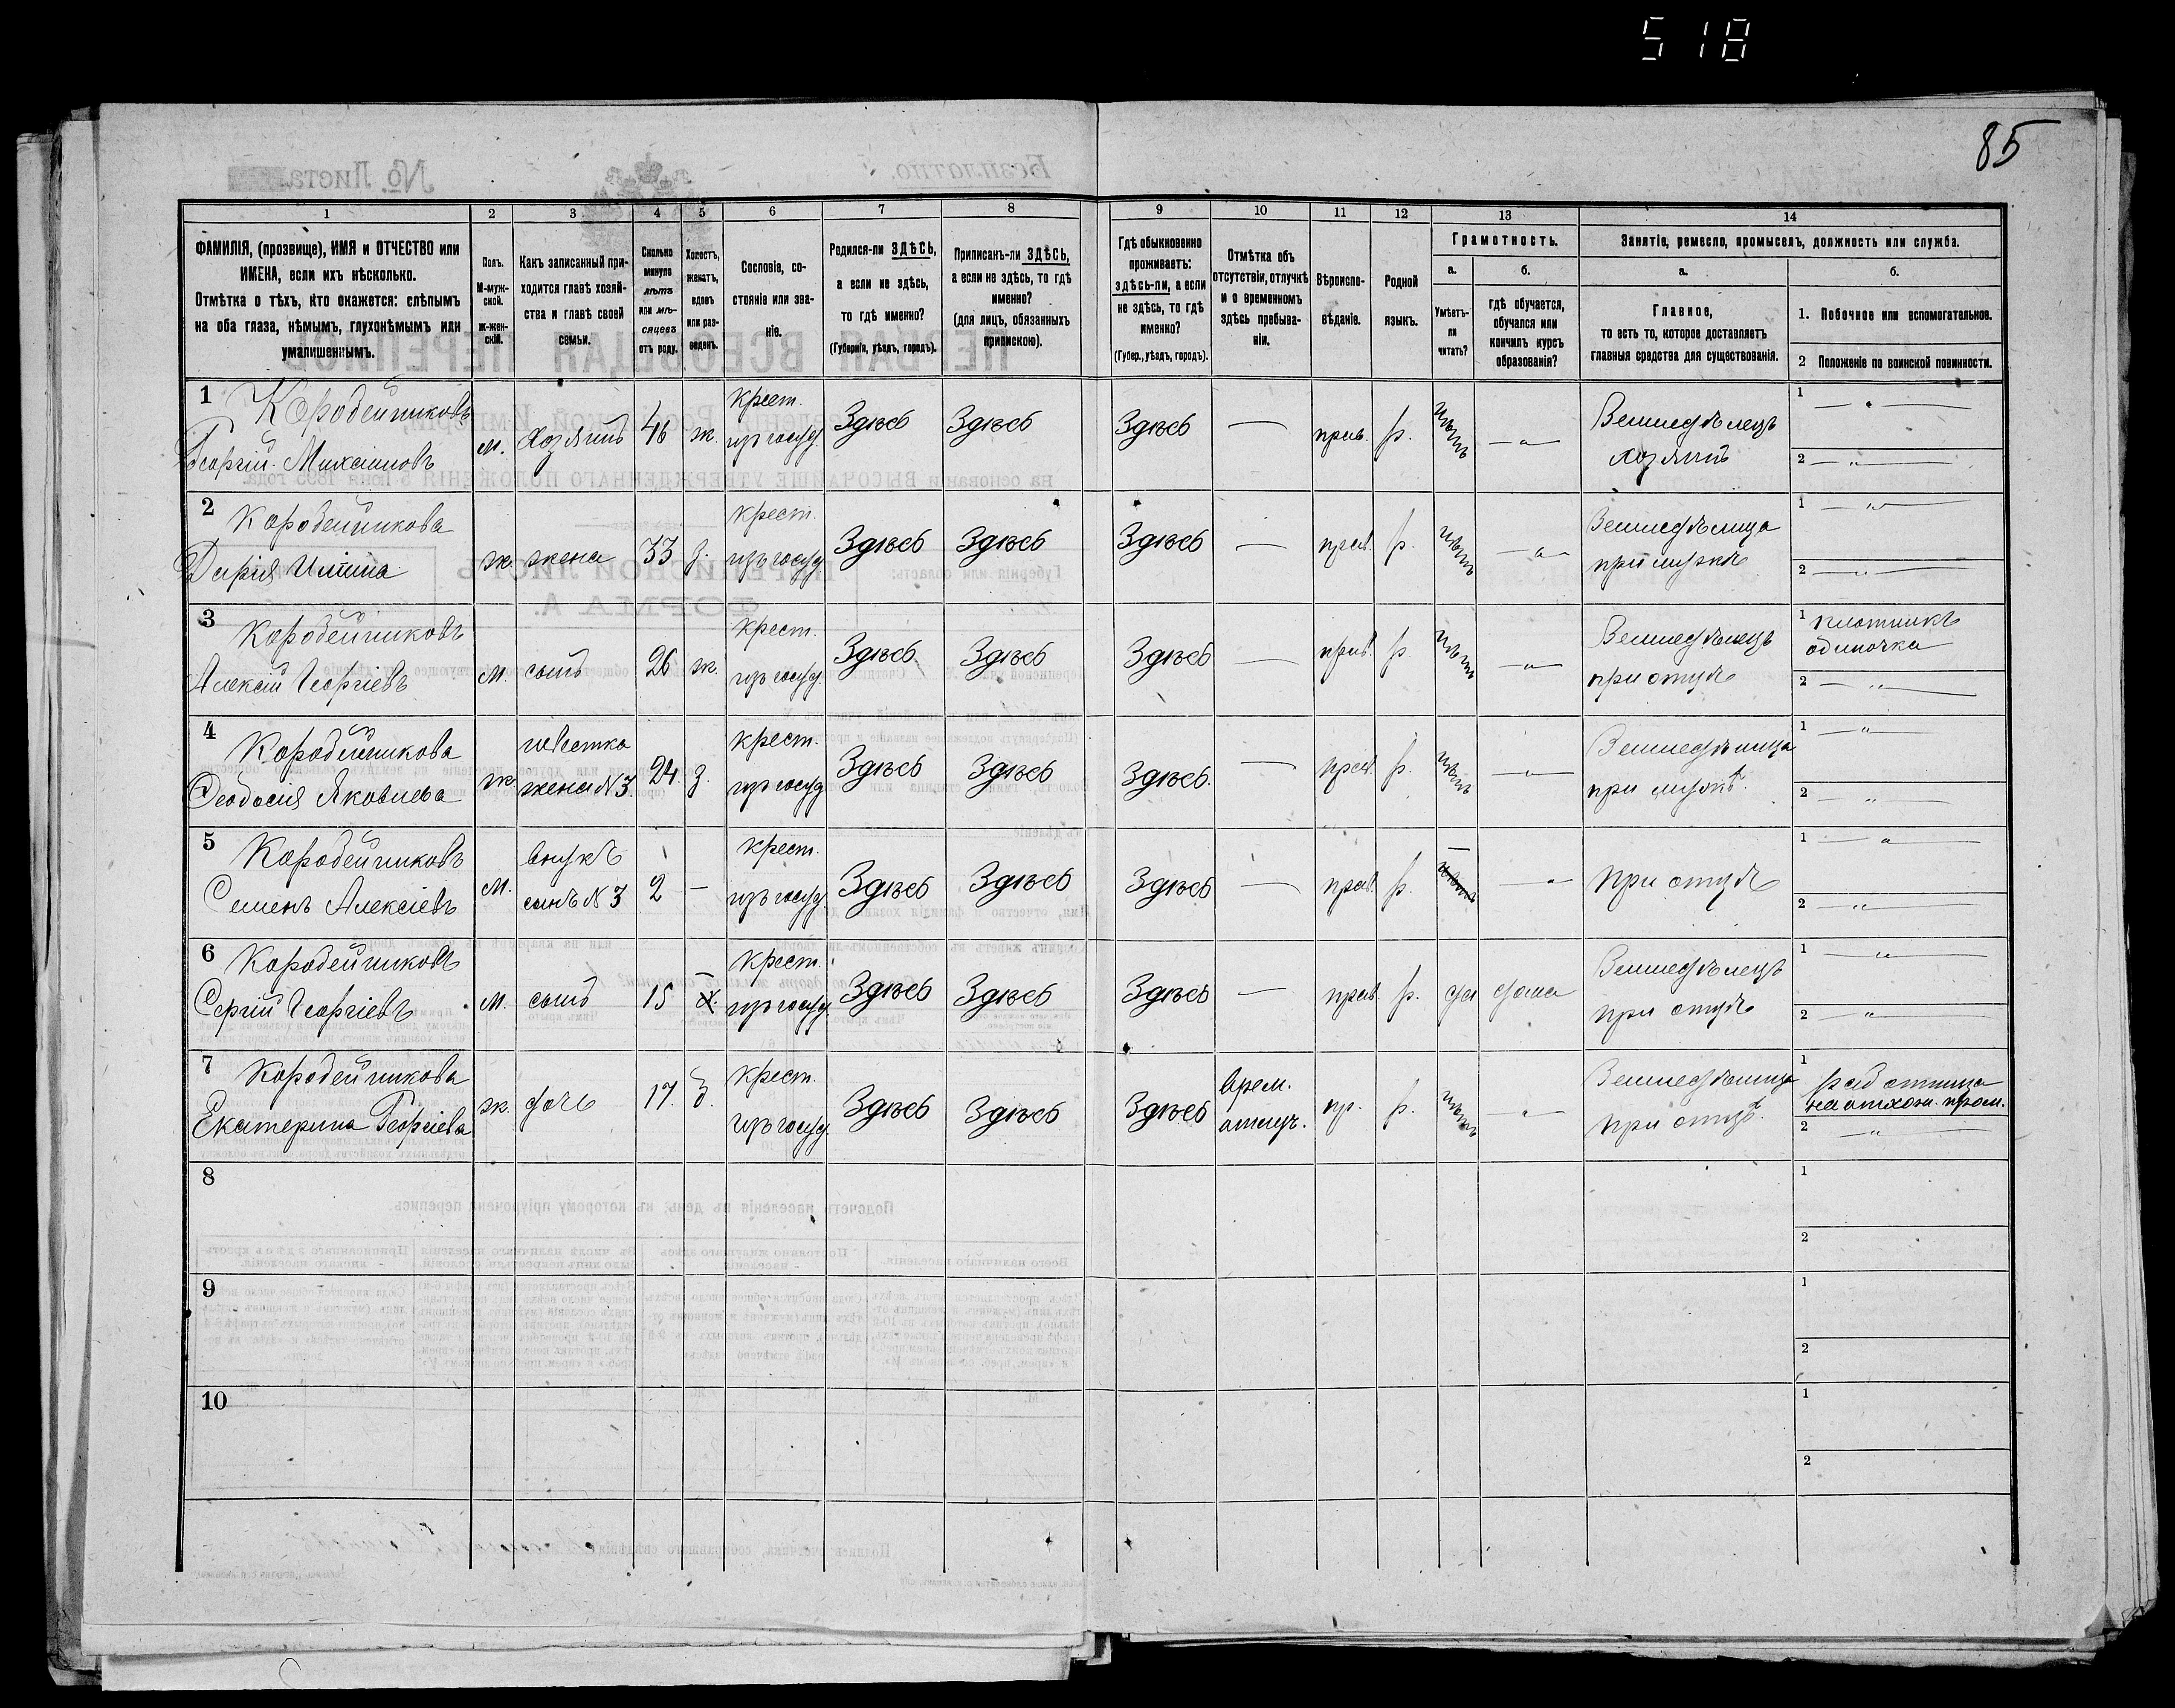 518
85
1
2
3
4
5
6
7
8
9
10
11
12
13
14
ФАМИЛІЯ, (прозвище), ИМЯ и ОТЧЕСТВО или
ИМЕНА, если ихъ нѣсколько.
Отмѣтка о тѣхъ, кто окажется: слѣпымъ
на оба глаза, нѣмымъ, глухонѣмымъ или
умалишеннымъ.
Полъ.
М-муж-
ской.
ж-жен-
скій.
Какъ записанный при-
ходится главѣ хозяй-
ства и главѣ своей
семьи.
Сколько
минуло
лѣтъ
или мѣ-
сяцевъ
отъ роду.
Холостъ,
женатъ,
вдовъ
или раз-
веденъ.
Сословіе, со-
стояніе или зва-
ніе.
Родился-ли ЗДѢСЬ,
а если не здѣсь,
то гдѣ именно?
(Губернія, уѣздъ, городъ).
Приписанъ-ли ЗДѢСЬ,
а если не здѣсь, то гдѣ
именно?
(для лицъ, обязанныхъ
припискою).
Гдѣ обыкновенно
проживаетъ:
здѣсь-ли, а если
не здѣсь, то гдѣ
именно?
(Губер., уѣздъ, городъ).
Отмѣтка объ
отсутствіи, отлучкѣ
и о временномъ
здѣсь пребыва-
ніи.
Вѣроиспо-
вѣданіе.
Родной
языкъ.
Грамотность.
а.
Умѣетъ-
ли
читать?
б.
гдѣ обучается,
обучался или
кончилъ курсъ
образованія?
Занятіе, ремесло, промыселъ, должность или служба.
а.
Главное,
то есть то, которое доставляетъ
главныя средства для существованія.
б.
1. Побочное или вспомогательное.
2 Положеніе по воинской повинности.
1 Коробейниковъ
Георгій Михаиловъ
м. хозяинъ 46 ж.
крест.
изъ госуд.
Здѣсь Здѣсь Здѣсь — прав. р. нѣтъ — " —
Земледѣлецъ
хозяинъ
1 — " —
2 — " —
2 Коробейникова
Дарія
ж. жена 33 з.
крест.
изъ госуд.
Здѣсь Здѣсь Здѣсь — прав. р. нѣтъ — " —
Земледѣлица
при мужѣ
1 — " —
2 — " —
3 Коробейниковъ
Алексій Георгіевъ
м. сынъ 26 ж.
крест.
изъ госуд.
Здѣсь Здѣсь Здѣсь — прав. р. нѣтъ — " —
Земледѣлецъ
при отцѣ
1 плотникъ
одиночка
2 — " —
4 Коробейникова
Феодосія Яковлева
ж.
невестка
жена N 3.
24. з.
крест.
изъ госуд
Здѣсь Здѣсь Здѣсь. — прав. р. нѣтъ — " —
Земледѣлица
при мужѣ.
1 — " —
2 — " —
5 Коробейниковъ
Семенъ Алексіевъ
м.
внукъ
сынъ N 3
2 —
крест.
изъ госуд.
Здѣсь Здѣсь Здѣсь — прав. р. — нѣтъ — "
при отцѣ
1 — " —
2 — " —
6 Коробейниковъ
Сергій Георгіевъ
м. сынъ 15 —
крест.
изъ госуд.
Здѣсь Здѣсь Здѣсь — прав. р. да дома
Земледѣлецъ
при отцѣ
1 — " —
2 — " —
7 Коробейникова
Екатерина Георгіева
ж. дочь 17. д.
крест.
изъ госуд.
Здѣсь Здѣсь Здѣсь
врем.
отлуч.
пр. р. нѣтъ — " —
Земледѣлица
при отцѣ.
1 работница
на отхож. пром.
2 — " —
8
1
2
9
1
2
10
1
2